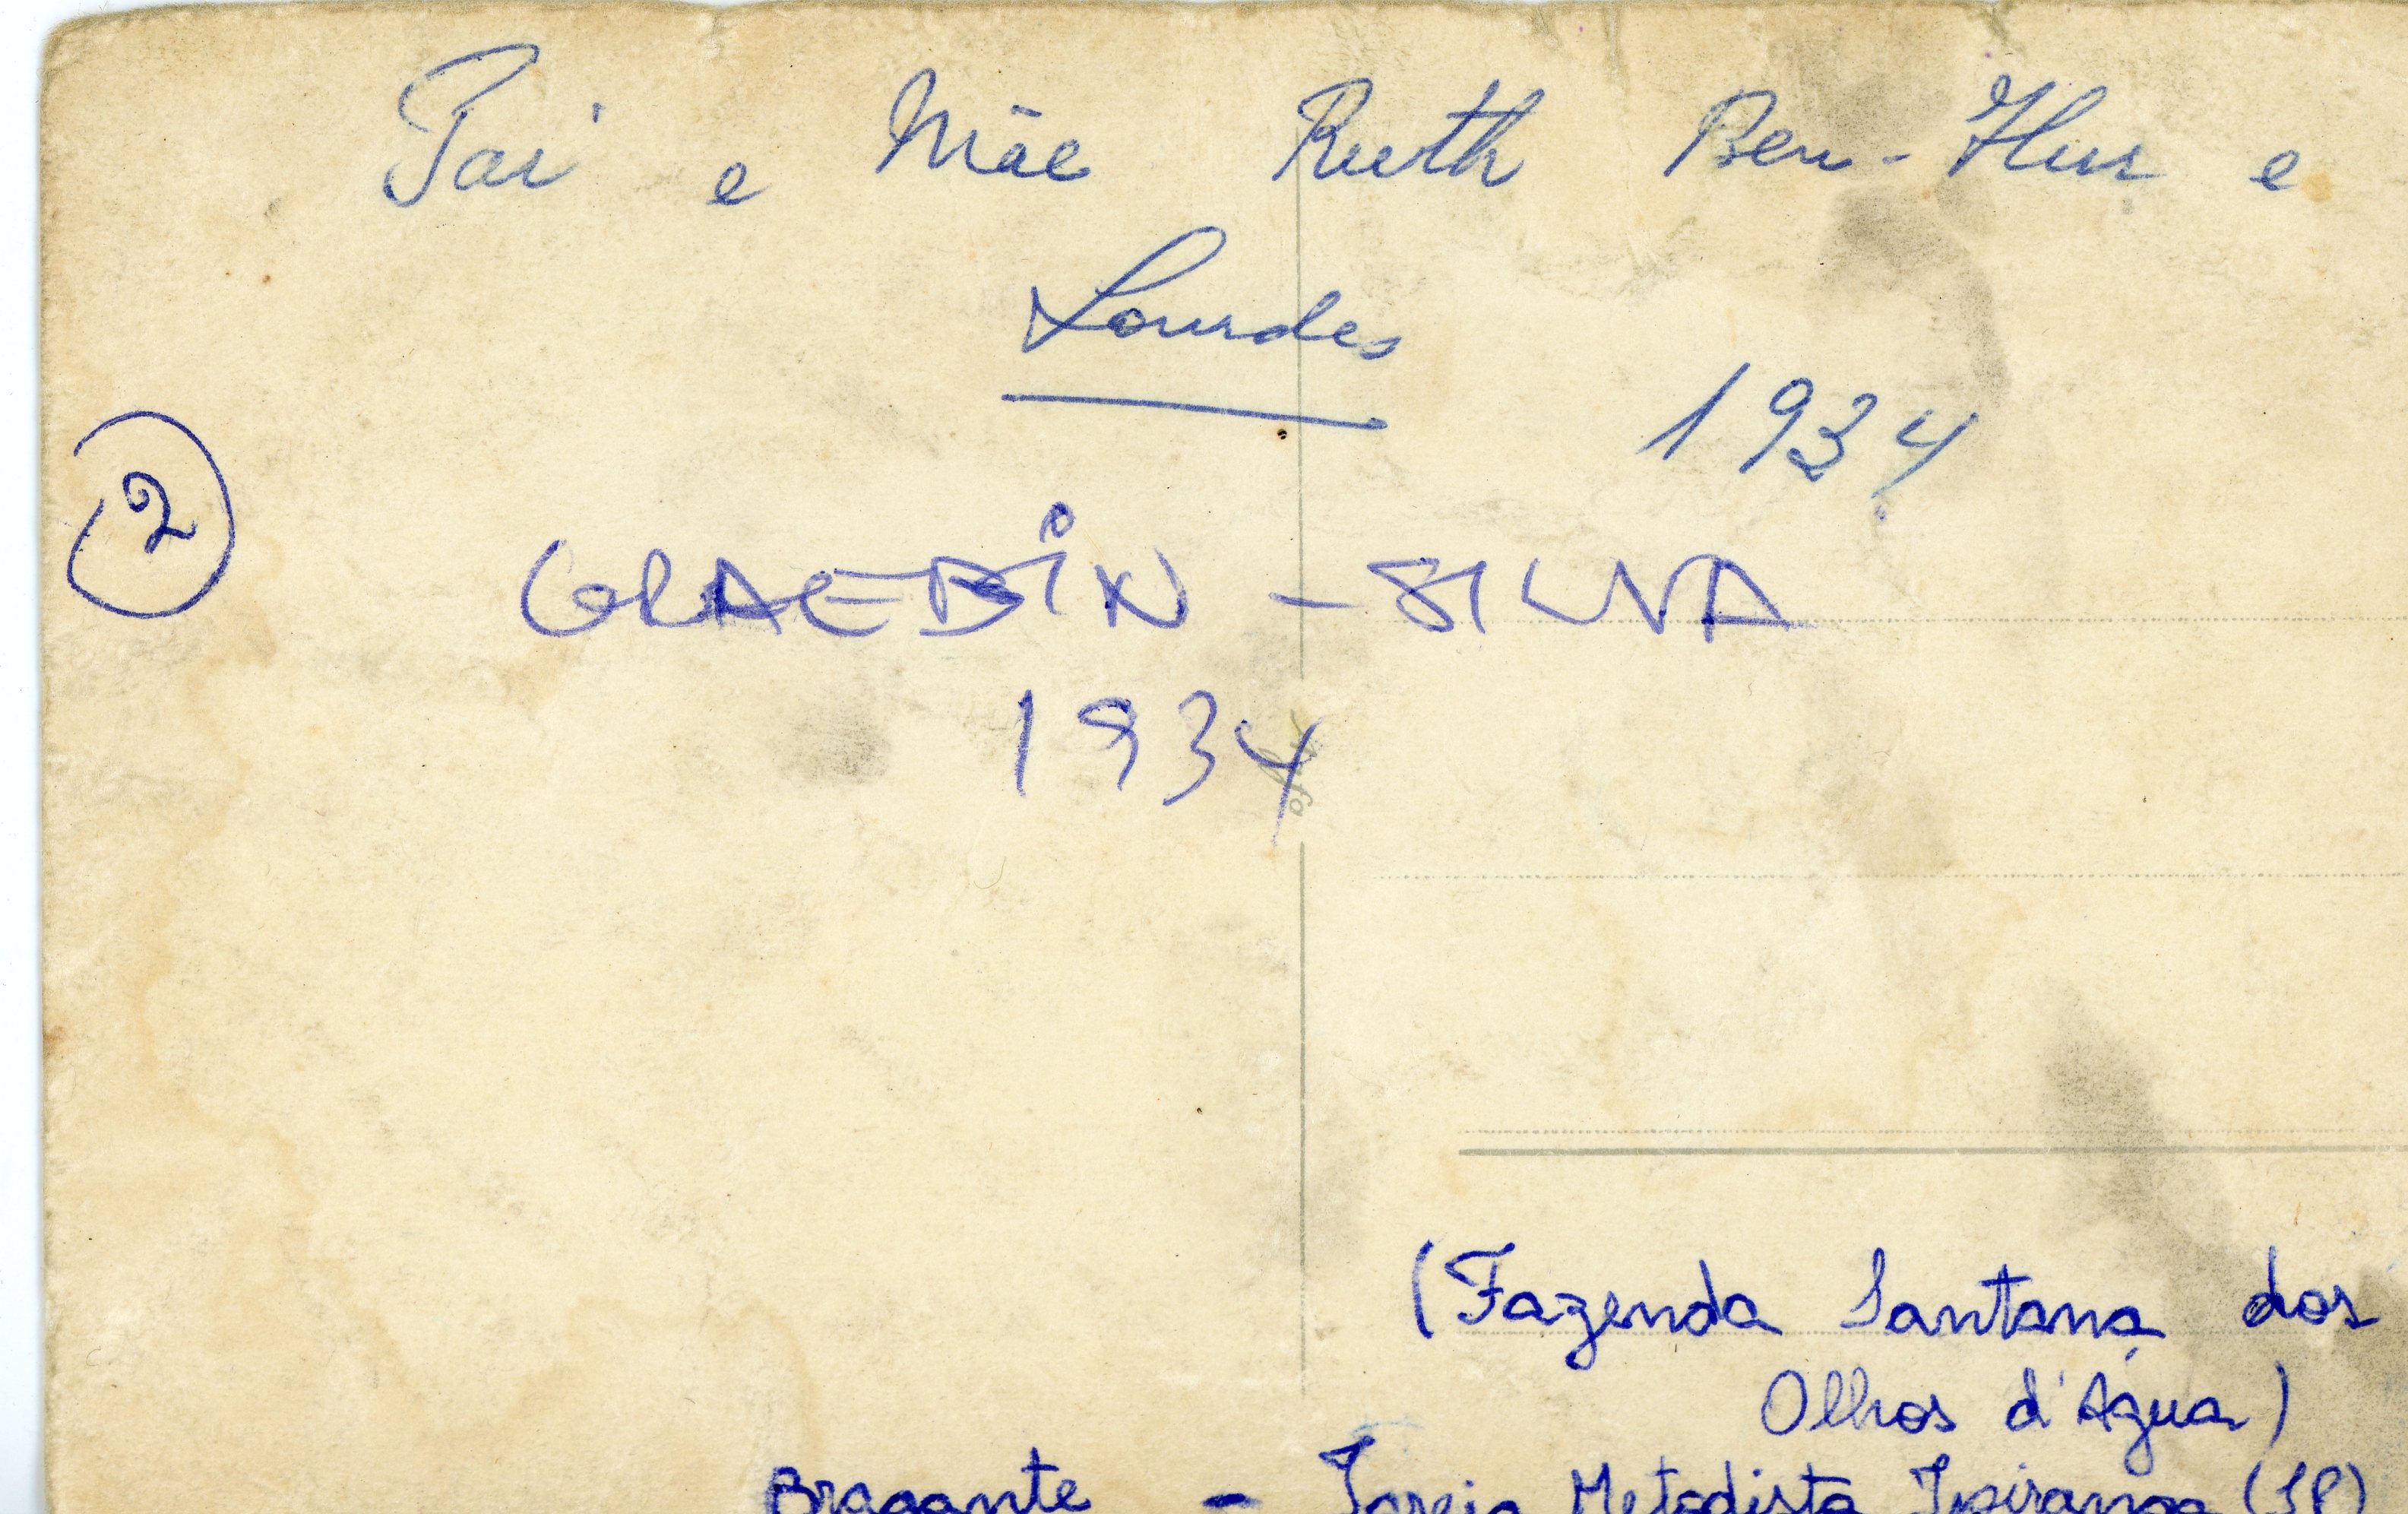 Pai e Mãe Ruth Ben-Hur e
Lourdes
1934
2
GRAEBIN - SILVA
1934
(Fazenda Santana dos
Olhos d'Água)
Bragante - Igreja Metodista Ipiranga (SP)